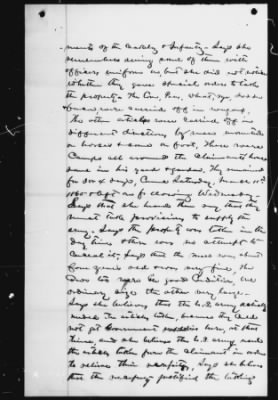 ments of the Cavalry & Infantry - Says she
remembers seeing some of them with
officers uniform on, but she did not notice
whether they gave special orders to take
the property - The Corn, Peas, Wheat, &c, and
were carried off in wagons,
The other articles were carried off in
different directions by men mounted
on horses & some on foot, There were
Camps all around the Claimants house
same in his yard & garden, They remained
for 3 or 4 days, Came Saturday
1865 & left on following Wednesday
Says that she heard them say that they
must take provisions to supply the
army. Says the property was taken in the
day time & there was no attempt to
conceal it, Says that the
one was very fine, the
other two were in good Condition, an
ordinary
Says she believes that the U.S. army actually
needed the articles taken, because they could
not get Government supplies here, at that
time, and she believes the U.S. army used
the articles taken from the Claimant in order
to relieve their necessity, Says she believes
that the necessity justified the taking